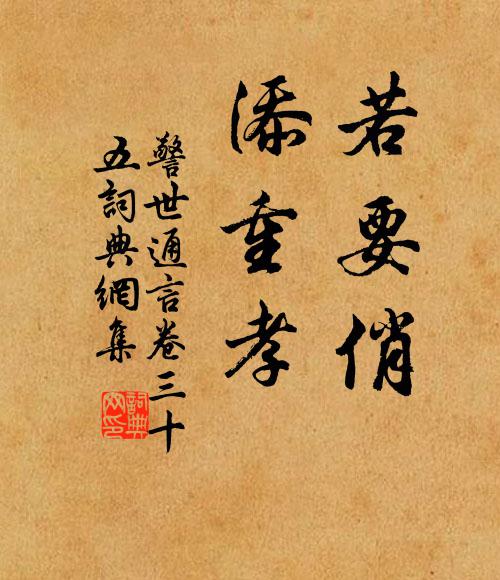 若要俏
添重孝
警世通言卷三十
五詞典網集
詞典
网印